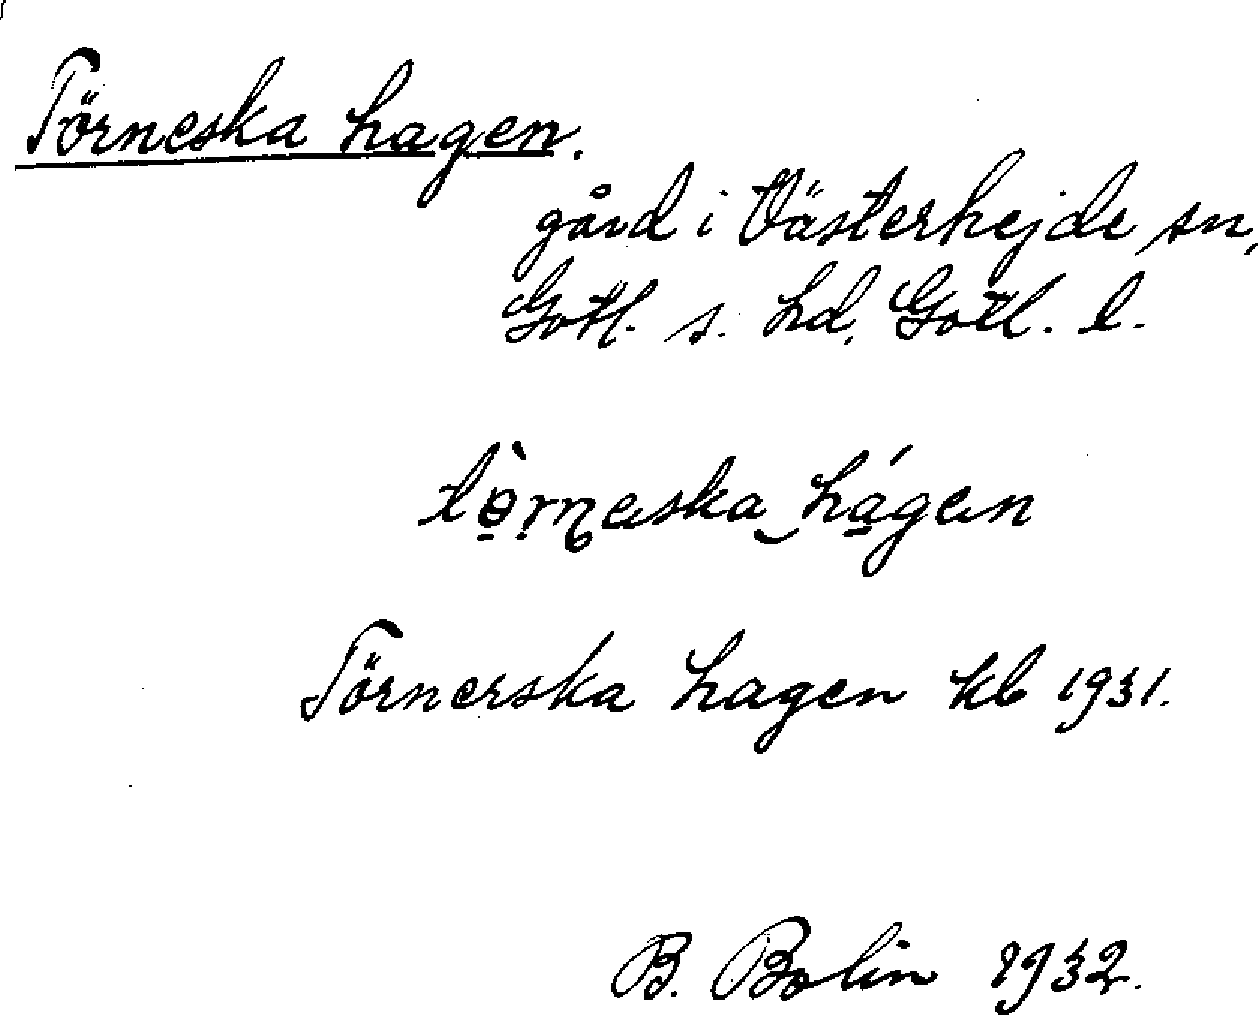 Törneska hagen.
gård i Västerhejde sn,
Gotl. s. hd, Gotl. l.
hágen
Törnerska hagen kb 1931.
B. Bolin 1932.